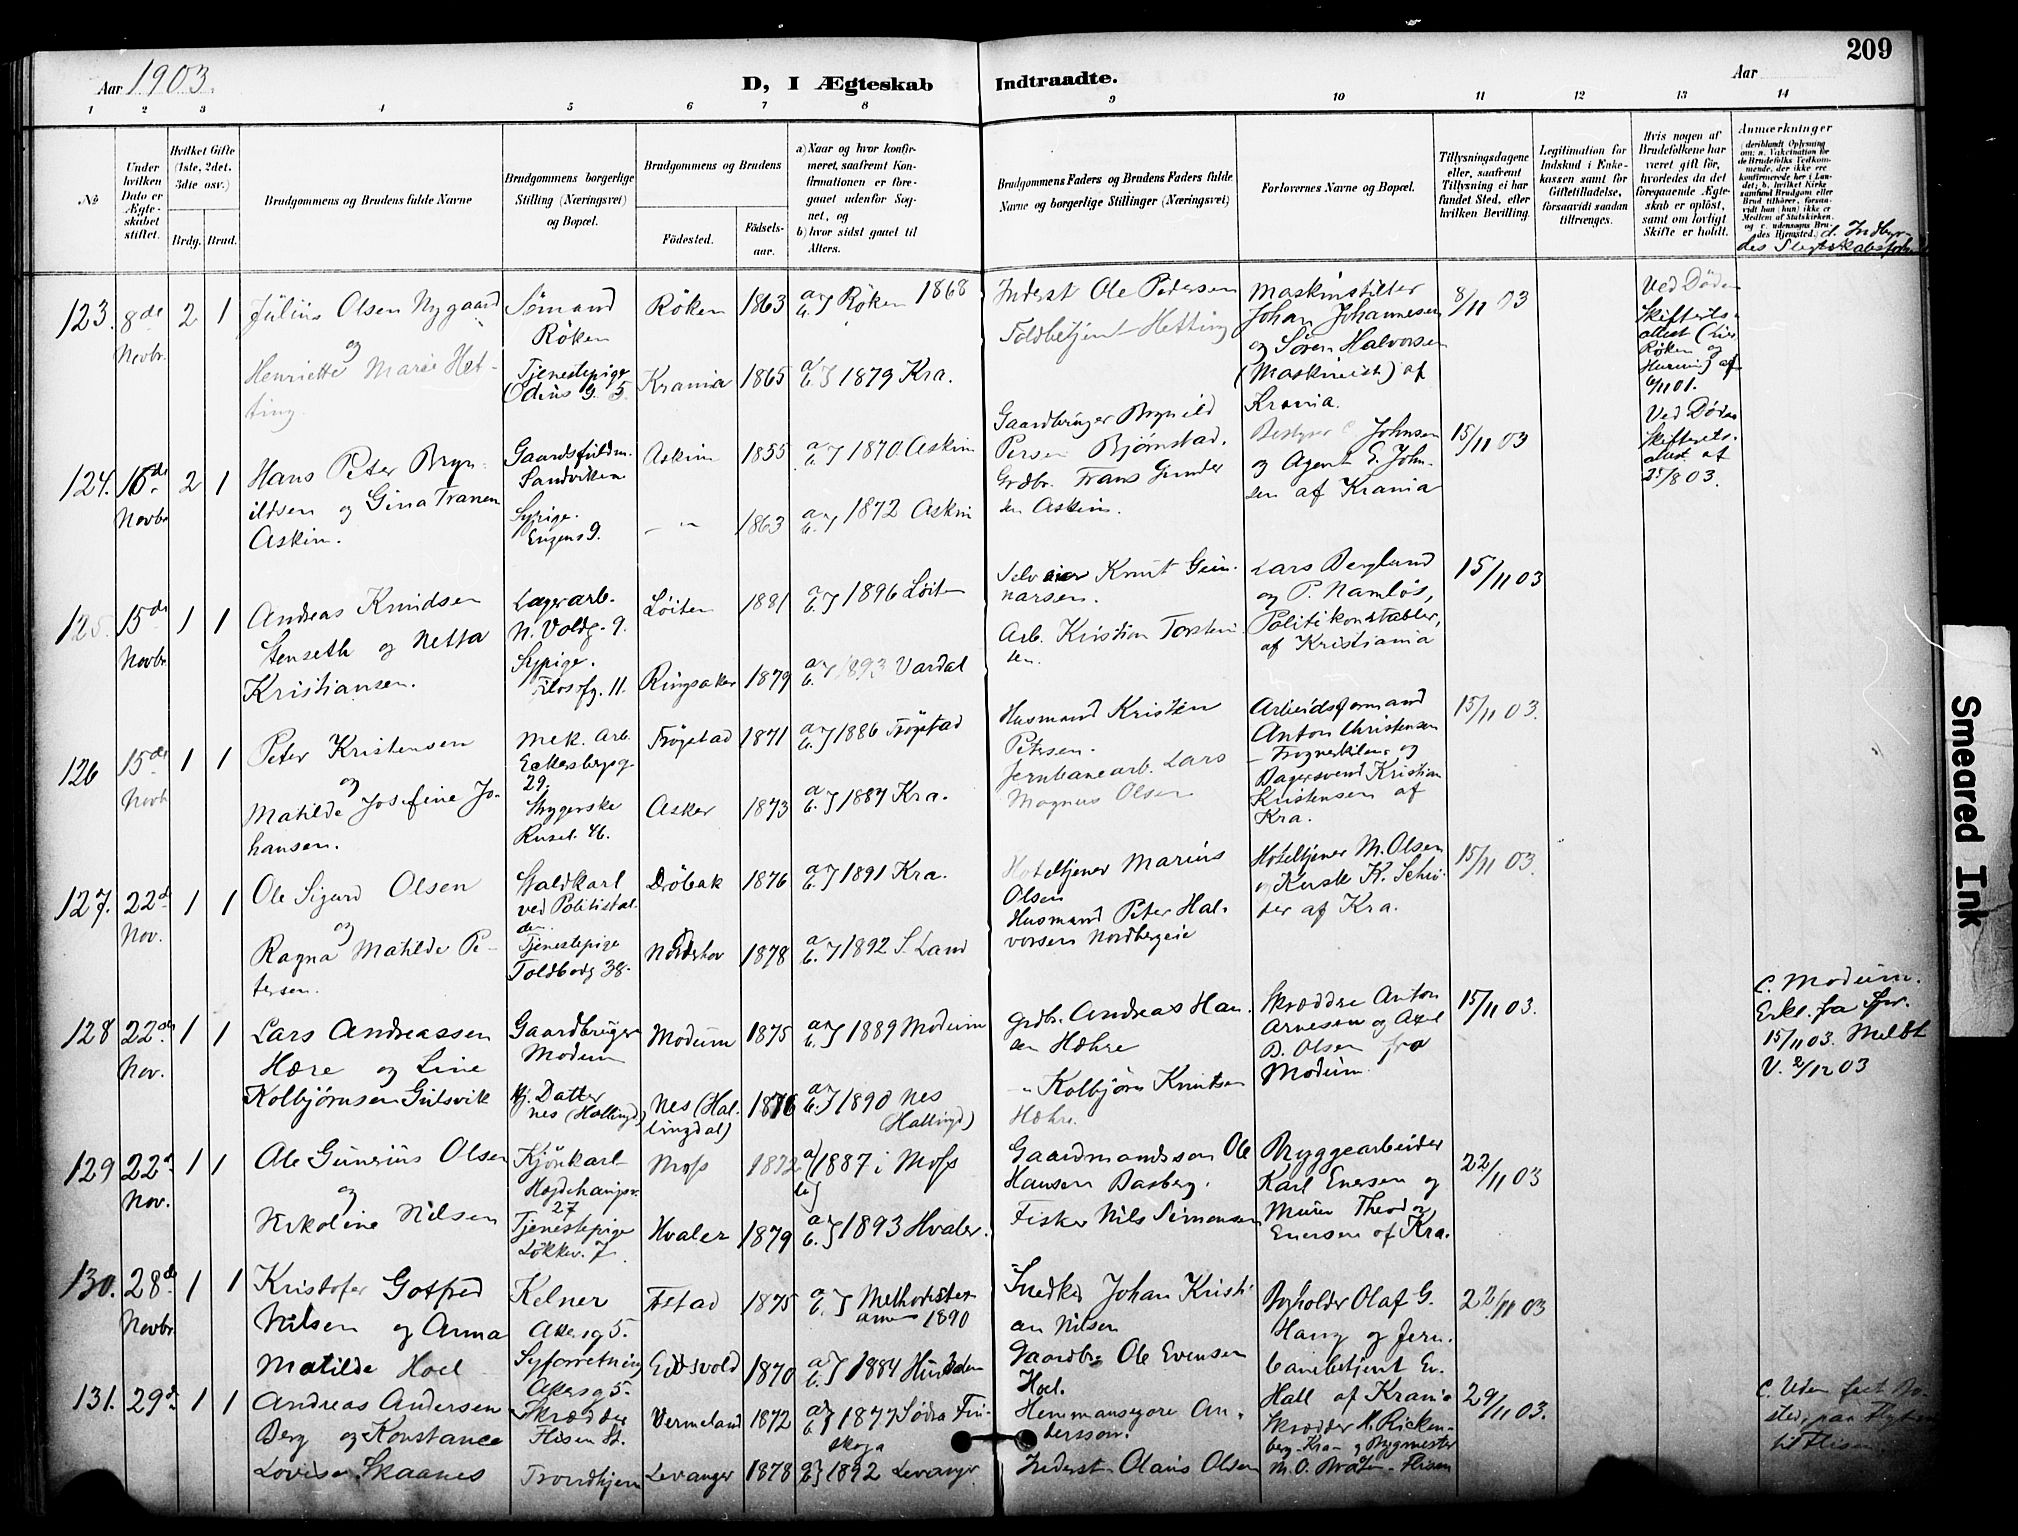 209
Aar 1903.
D, I Ægteskab Indtraadte.
Aar
1 2 3 4 5 6 7 8 9 10 11 12 13 14
No
Under hvilken Dato er Ægteskabet stiftet.
Hvilket Gifte (1ste, 2det, 3die osv.)
Brdg. Brud.
Brudgommens og Brudens fulde Navne
Brudgommens borgerlige Stilling (Næringsvei) og Bopæl.
Brudgommens og Brudens
Fødested.
Fødselsaar.
a) Naar og hvor konfirmeret, saafremt Konfirmationen er foregaaet udenfor Sognet, og
b) hvor sidst gaaet til Alters.
Brudgommens Faders og Brudens Faders fulde Navne og borgerlige Stillinger (Næringsvei)
Forlovernes Navne og Bopæl.
Tillysningsdagene eller, saafremt Tillysning ei har fundet Sted, efter hvilken Bevilling.
Legitimation for Indskud i Enkekassen samt for Giftetilladelse, forsaavidt saadan tiltrænges.
Hvis nogen af Brudefolkene har været gift før, hvorledes da det foregaaende Ægteskab er opløst, samt om lovligt Skifte er holdt.
Anmærkninger (deriblandt Oplysning om: a. Vakcination for de Brudefolks Vedkommende, der ikke ere konfirmerede her i Landet; b. hvilket Kirkesamfund Brudgom eller Brud tilhører, forsaavidt han (hun) ikke er Medlem af Statskirken, og c. udensogns Brudes Hjemsted.)
123. 8de Novbr. 2 1
Julius Olsen Nygaard
og
Henriette Marie Hetting.
Sømand
Røken
Tjenestepige
Odins g. 5.
Røken 1863 a b } Røken 1868
Krania 1865 a b } 1879 Kra.
Inderst Ole Pedersen
Toldbetjent Hetting
Maskinstiller
Johan Johannesen
og Søren Halvorsen
(Maskinist) af
Krania.
8/11 03
Ved Døden
Skifterets-
attest (Lier
Røken og
Hurum) af
6/11 01.
124. 15de Novbr 2 1
Hans Peter Bryn-
ildsen og Gina Tranen
Askim.
Gaardsfuldm.
Sandviken
Sypige.
Eugens 9.
Askim 1855 a b } 1870 Askim
— " 1863 a b } 1872 Askim
Gaardbruger Brynild
Persen Bjørnstad.
Grdbr. Frans Gunder
sen Askim.
Bestyrer C. Johnsen
og Agent E. John-
sen af Krania
15/11 03
Ved Døden
Skifterets-
attest af
25/8 03.
125. 15de Novbr. 1 1
Andreas Knudsen
Stenseth og Netta
Kristiansen.
Lagerarb.
N. Voldg. 9.
Sypige.
Filosofg. 11.
Løiten 1881 a b } 1896 Løiten
Ringsaker 1879 a b } 1893 Vardal
Selveier Knut Gun-
narsen.
Arb. Kristian Torsten-
sen.
Lars Berglund
og P. Namløs,
Politikonstabler,
af Kristiania
15/11 03
126 15de Novbr 1 1
Peter Kristensen
og
Matilde Josefine Jo-
hansen.
Mek. Arb.
Eckersbergsg.
29.
Strygerske
Rusel. 46.
Trøgstad 1871 a b } 1886 Trøgstad
Asker 1873 a b } 1887 Kra.
Husmand Kristen
Petersen.
Jernbanearb. Lars
Magnus Olsen
Arbeidsformand
Anton Christensen
— Frognerkilen og
Bagersvend Kristian
Kristensen af
Kra.
15/11 03.
127. 22de Nov. 1 1
Ole Sigurd Olsen
og
Ragna Matilde Pe-
tersen.
Staldkarl
ved Politistal-
den.
Tjenestepige
Toldbodg 38.
Drøbak 1876 a b } 1891 Kra.
Nordshov 1878 a b } 1892 S. Land
Hoteltjener Marius
Olsen
Husmand Peter Hal-
vorsen Nordbergeie
Hoteltjener M. Olsen
og Kusk K. Schrø-
der af Kra.
15/11 03.
128 22de Nov. 1 1
Lars Andreassen
Hære og Line
Kolbjørnsen Gulsvik
Gaardbruger
Modum
Hj. Datter
Nes (Hallingd)
Modum 1875 a b } 1889 Modum
Nes (Hal-
lingdal) 1876 a b } 1890 Nes
(Hallingd)
Grdbr. Andreas Han-
sen Hæhre
" Kolbjørn Knutsen
Hæhre.
Skrædder Anton
Arnesen og Axel
B. Olsen fra
Modum.
15/11 03.
C. Modum.
Erkl. fra Spr.
15/11 03. Meldt
V. 2/12 03
129 22de Nov. 1 1
Ole Gunerius Olsen
og
Nikoline Nilsen
Kjørekarl
27
Tjenestepige
Løkkev. 7
Moss 1872 a b } 1887 i Moss
Hvaler 1879 a b } 1893 Hvaler.
Gaardmandssøn Ole
Hansen Basberg.
Fisker Nils Simensen
Bryggearbeider
Karl Enersen og
Murer Theodog
Enersen af Kra.
22/11 03
130. 28de Novbr. 1 1
Kristofer Gotfred
Nilsen og Anna
Matilde Hoel
Kelner
Akersg 5.
Syforretning
Akersg 5.
1875 a b } Methodister-
arne 1890
Eidsvold 1870 a b } 1884 Hurdalen
Snedker Johan Kristi-
an Nilsen
Gaardbr. Ole Evensen
Hoel.
Bogholder Olaf G.
Haug og Jern-
banebetjent Ev.
Hall af Krania
22/11 03
131. 29de 1 1
Andreas Andersen
Berg og Konstance
Lovise Skaanes
Skrædder
Flisen St.
Trondhjem
Vermeland 1872 a b } 1877 Södra Fin-
skoga
Levanger 1878 a b } 1892 Levanger
Hemmansegare An-
dersson.
Inderst Olaus Olsen
Skrædder H. Ricken-
berg Kra og Bygmester
M. O. Bråten Flisen
29/11 03.
C. Uden fast Bo-
sted, paa Flyt
til Flisen.
Smeared Ink